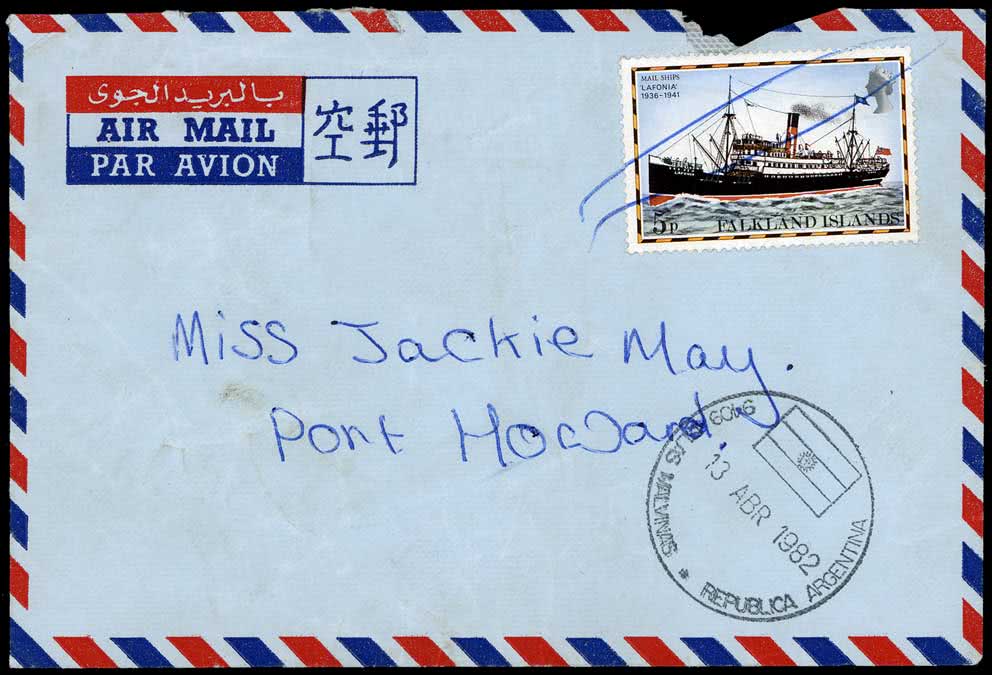 بالبريد الجوى
AIR MAIL
PAR AVION
空郵
MAIL SHIPS
'LAFONIA'
1936-1941
5p FALKLAND ISLANDS
Miss Jackie May.
Port Howard.
9409 ISLAS MALVINAS * REPUBLICA ARGENTINA
13 ABR 1982